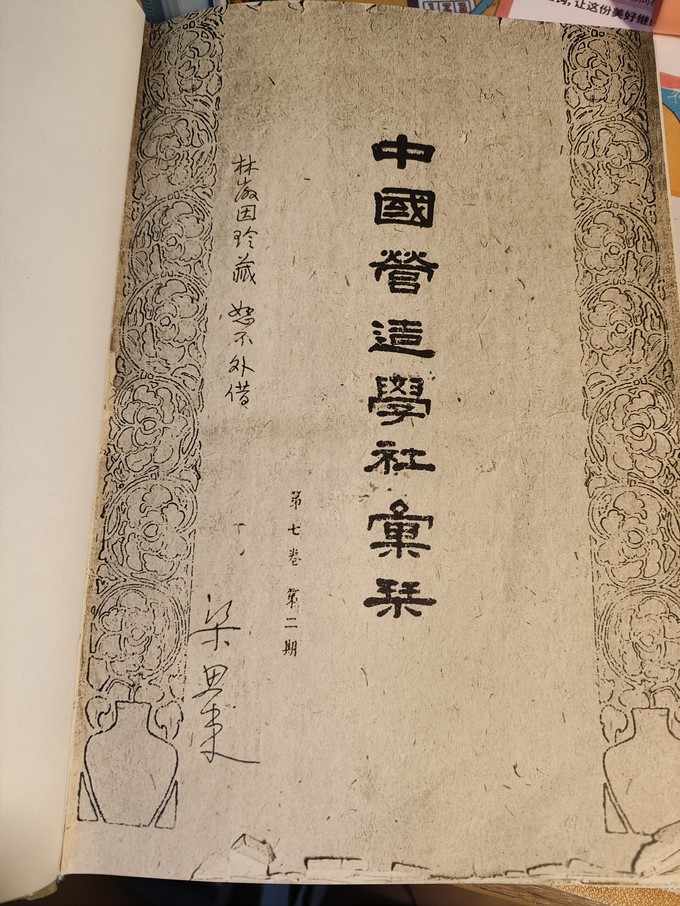 让这份美好继
中國營造學社彙栞
第七卷 第二期
林徽因珍藏 恕不外借
梁思成